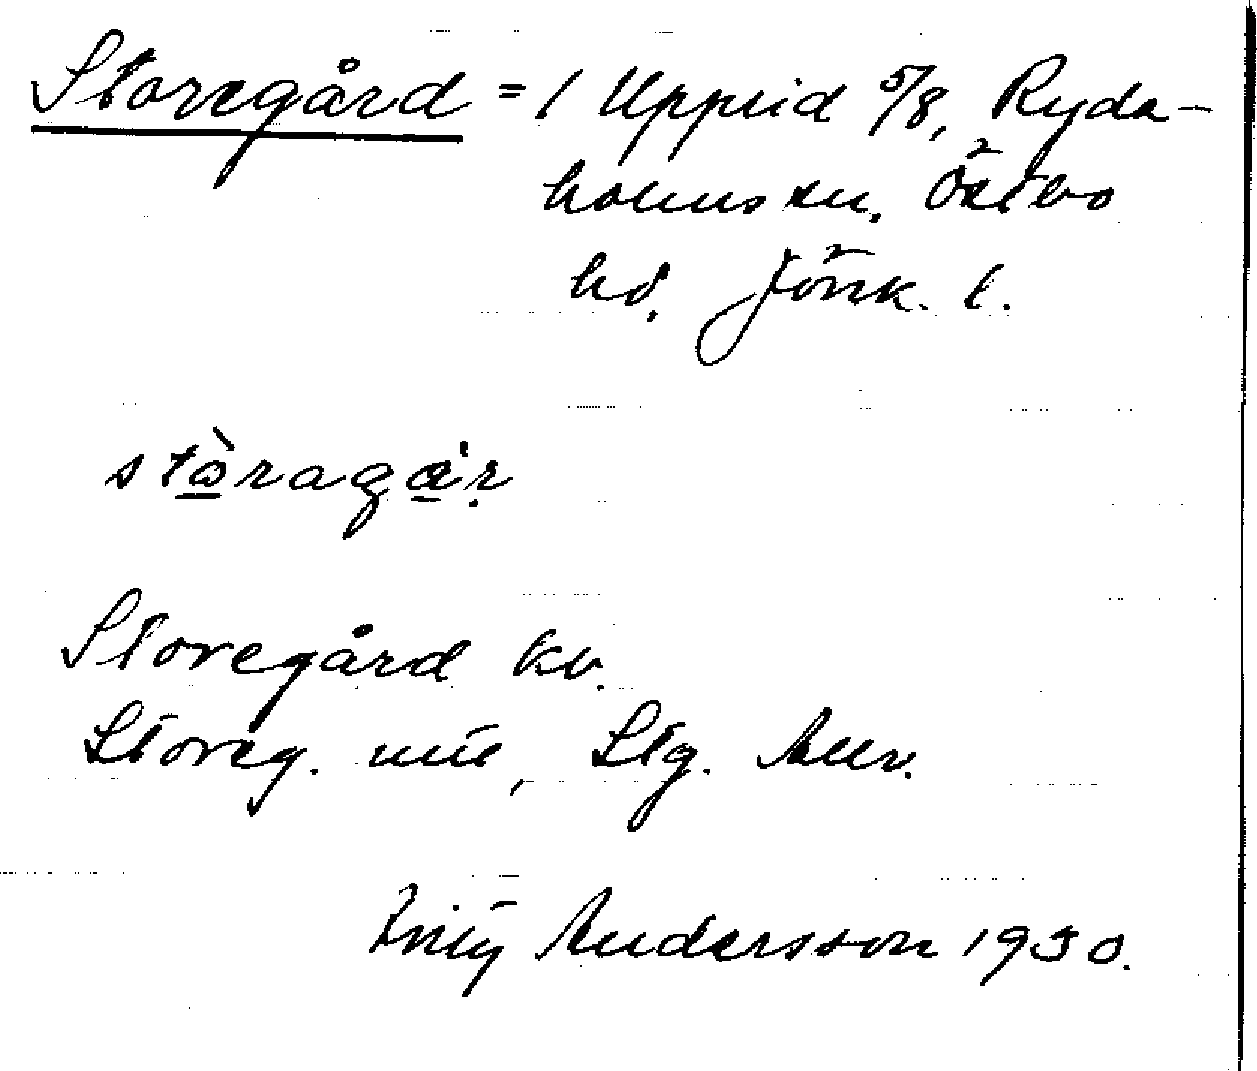 Storegård = 1 Upplid 5/8, Ryda-
holms sn. Östbo
hd. Jönk. l.
stòragá̱r
Storegård kv.
Storeg. mtl, Stg.
Andersson 1930.